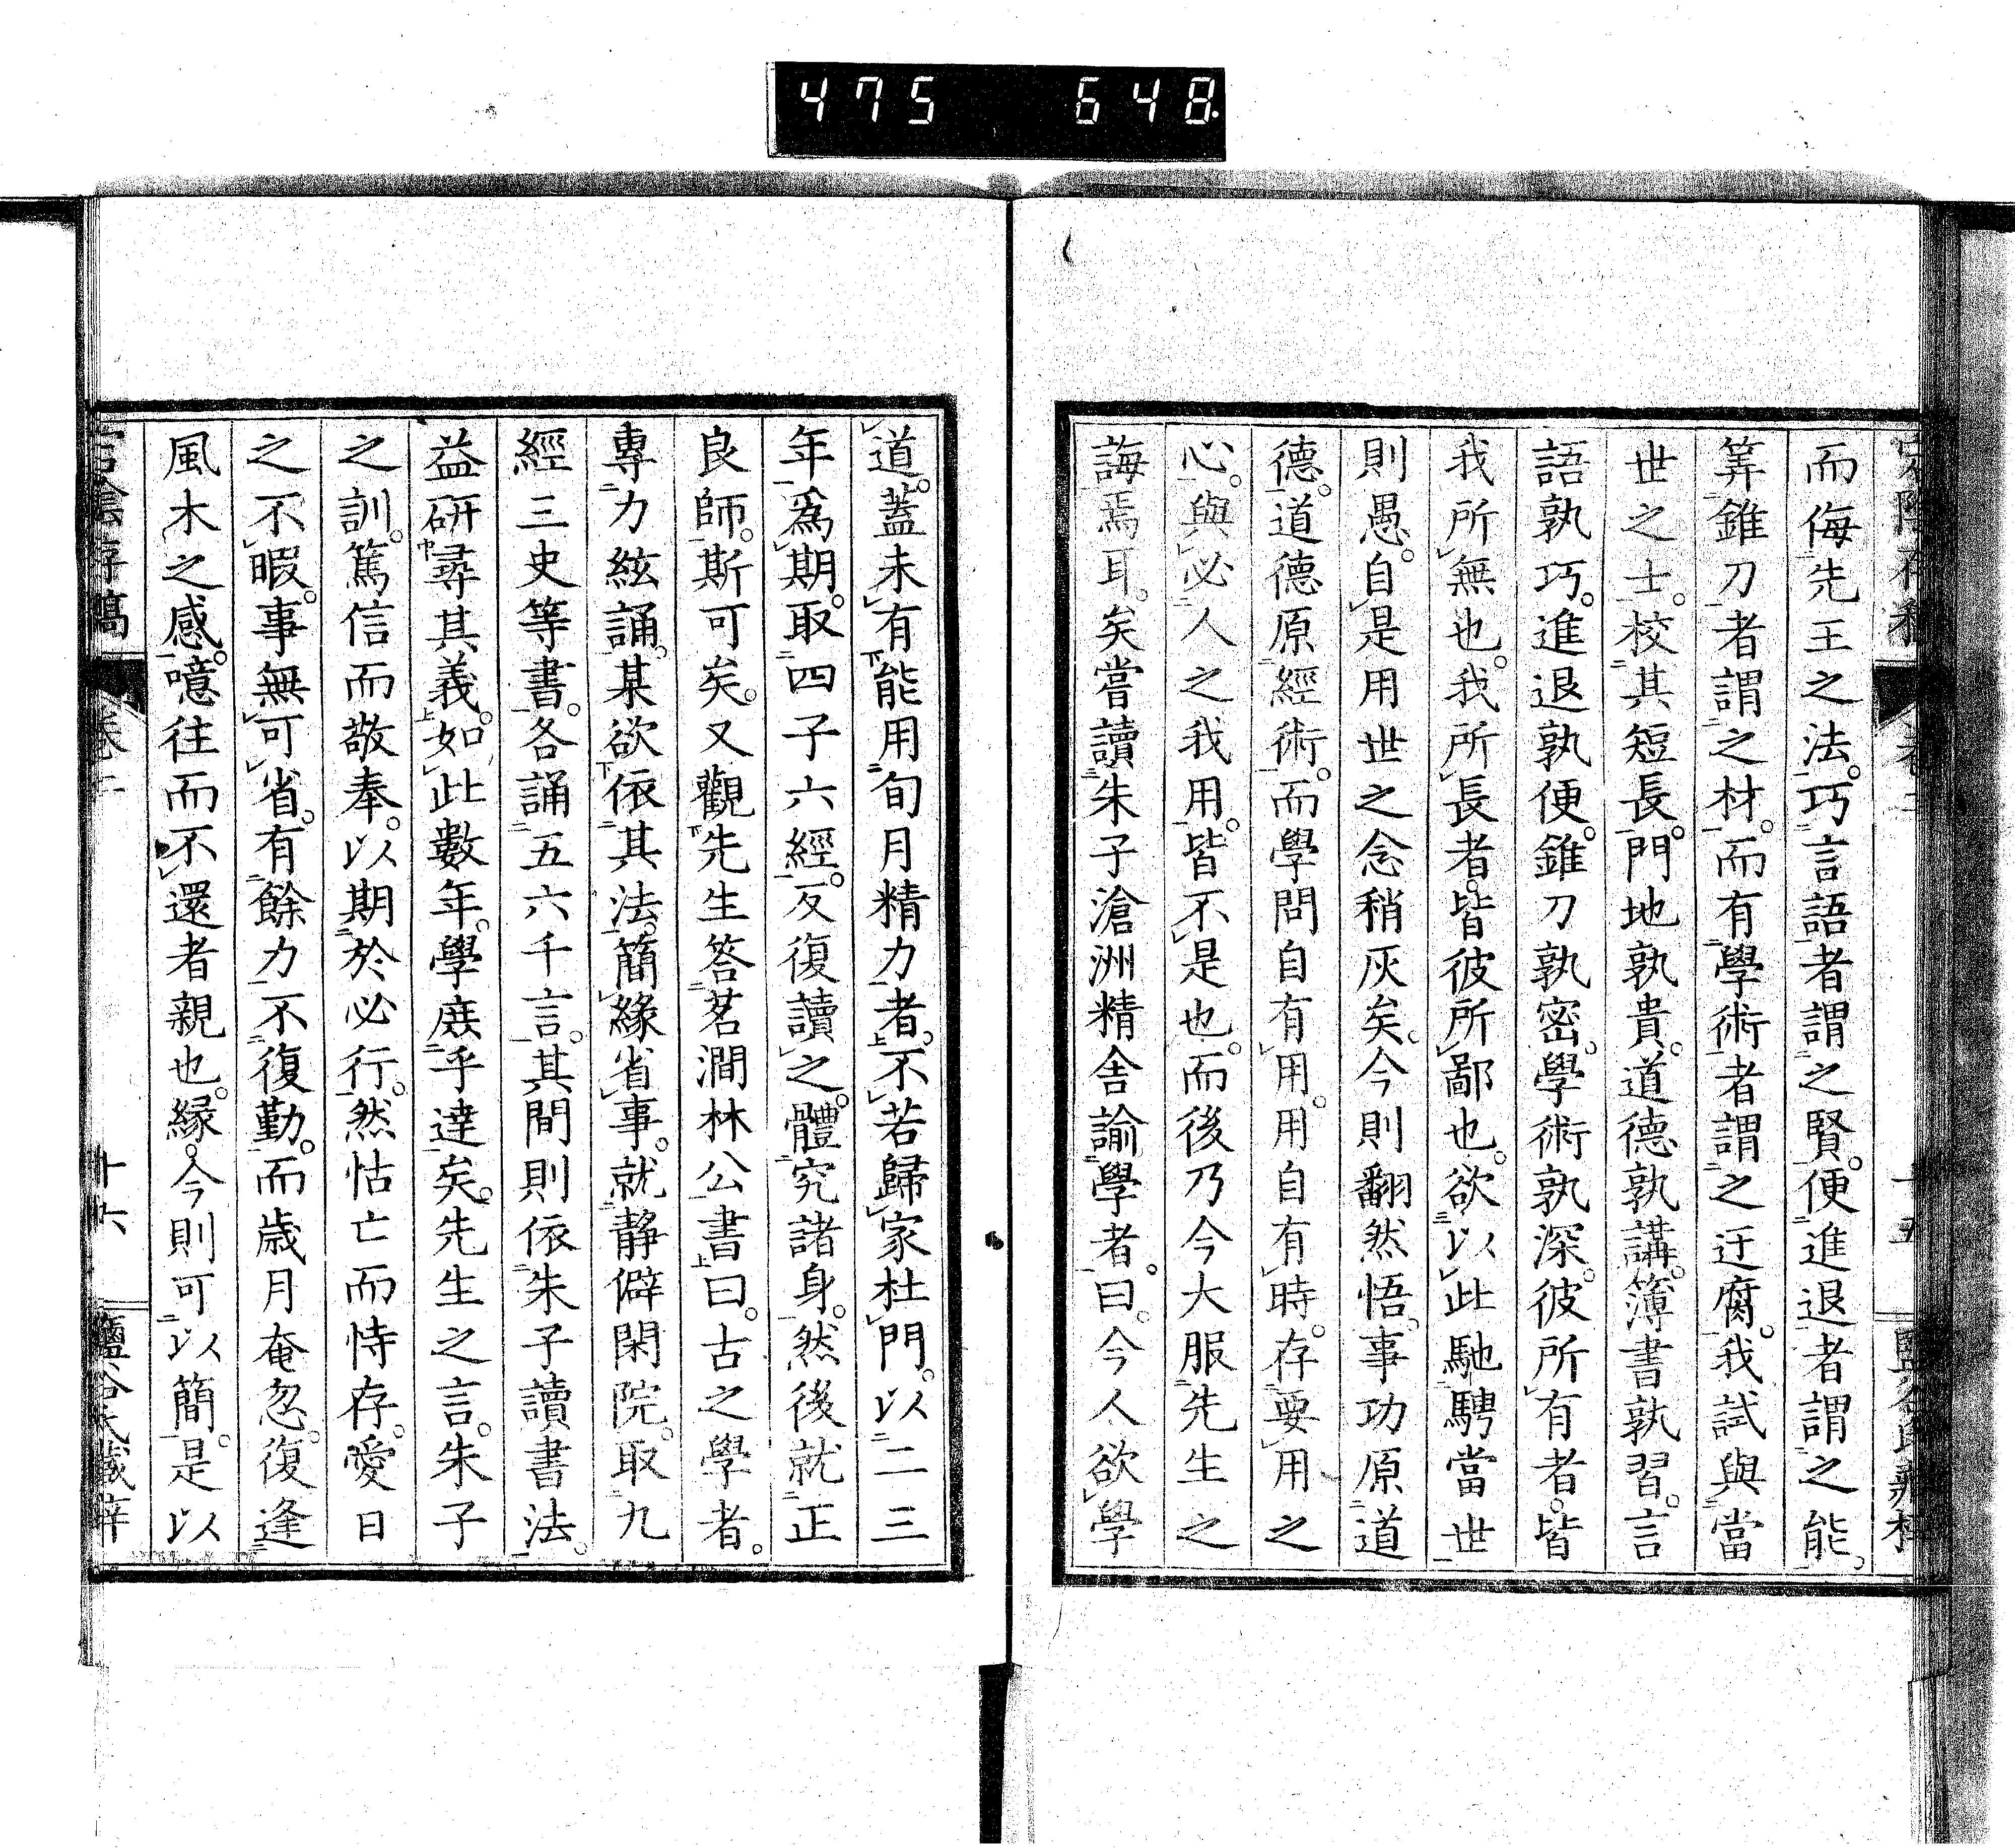 475 648
而侮先王之法。巧言語者謂之賢。便進退者謂之能。
筭錐刀者謂之材。而有學術者謂之迂腐。我試與當
世之士。校其短長。門地孰貴。道德孰講。簿書孰習。言
語孰巧。進退孰便。錐刀孰密。學術孰深。彼所有者。皆
我所無也。我所長者。皆彼所鄙也。欲以此馳騁當世
則愚。自是用世之念稍灰矣。今則翻然悟。事功原道
德。道德原經術。而學問自有用。用自有時。存要用之
心。與必人之我用。皆不是也。而後乃今大服先生之
誨焉耳矣。嘗讀朱子滄洲精舍諭學者。曰。今人欲學
道。蓋未有能用旬月精力者。不若歸家杜門。以二三
年爲期。取四子六經。反復讀之。體究諸身。然後就正
良師。斯可矣。又觀先生答茗澗林公書曰。古之學者。
專力絃誦。某欲依其法。簡緣省事。就靜僻閑院。取九
經三史等書。各誦五六千言。其間則依朱子讀書法。
益研尋其義。如此數年。學庶乎達矣。先生之言。朱子
之訓。篤信而敬奉。以期於必行。然怙亡而恃存。愛日
之不暇。事無可省。有餘力不復勤。而歲月奄忽。復逢
風木之感。噫往而不還者親也。緣今則可以簡。是以
宕陰存稿 卷二 十六 鹽谷氏藏梓